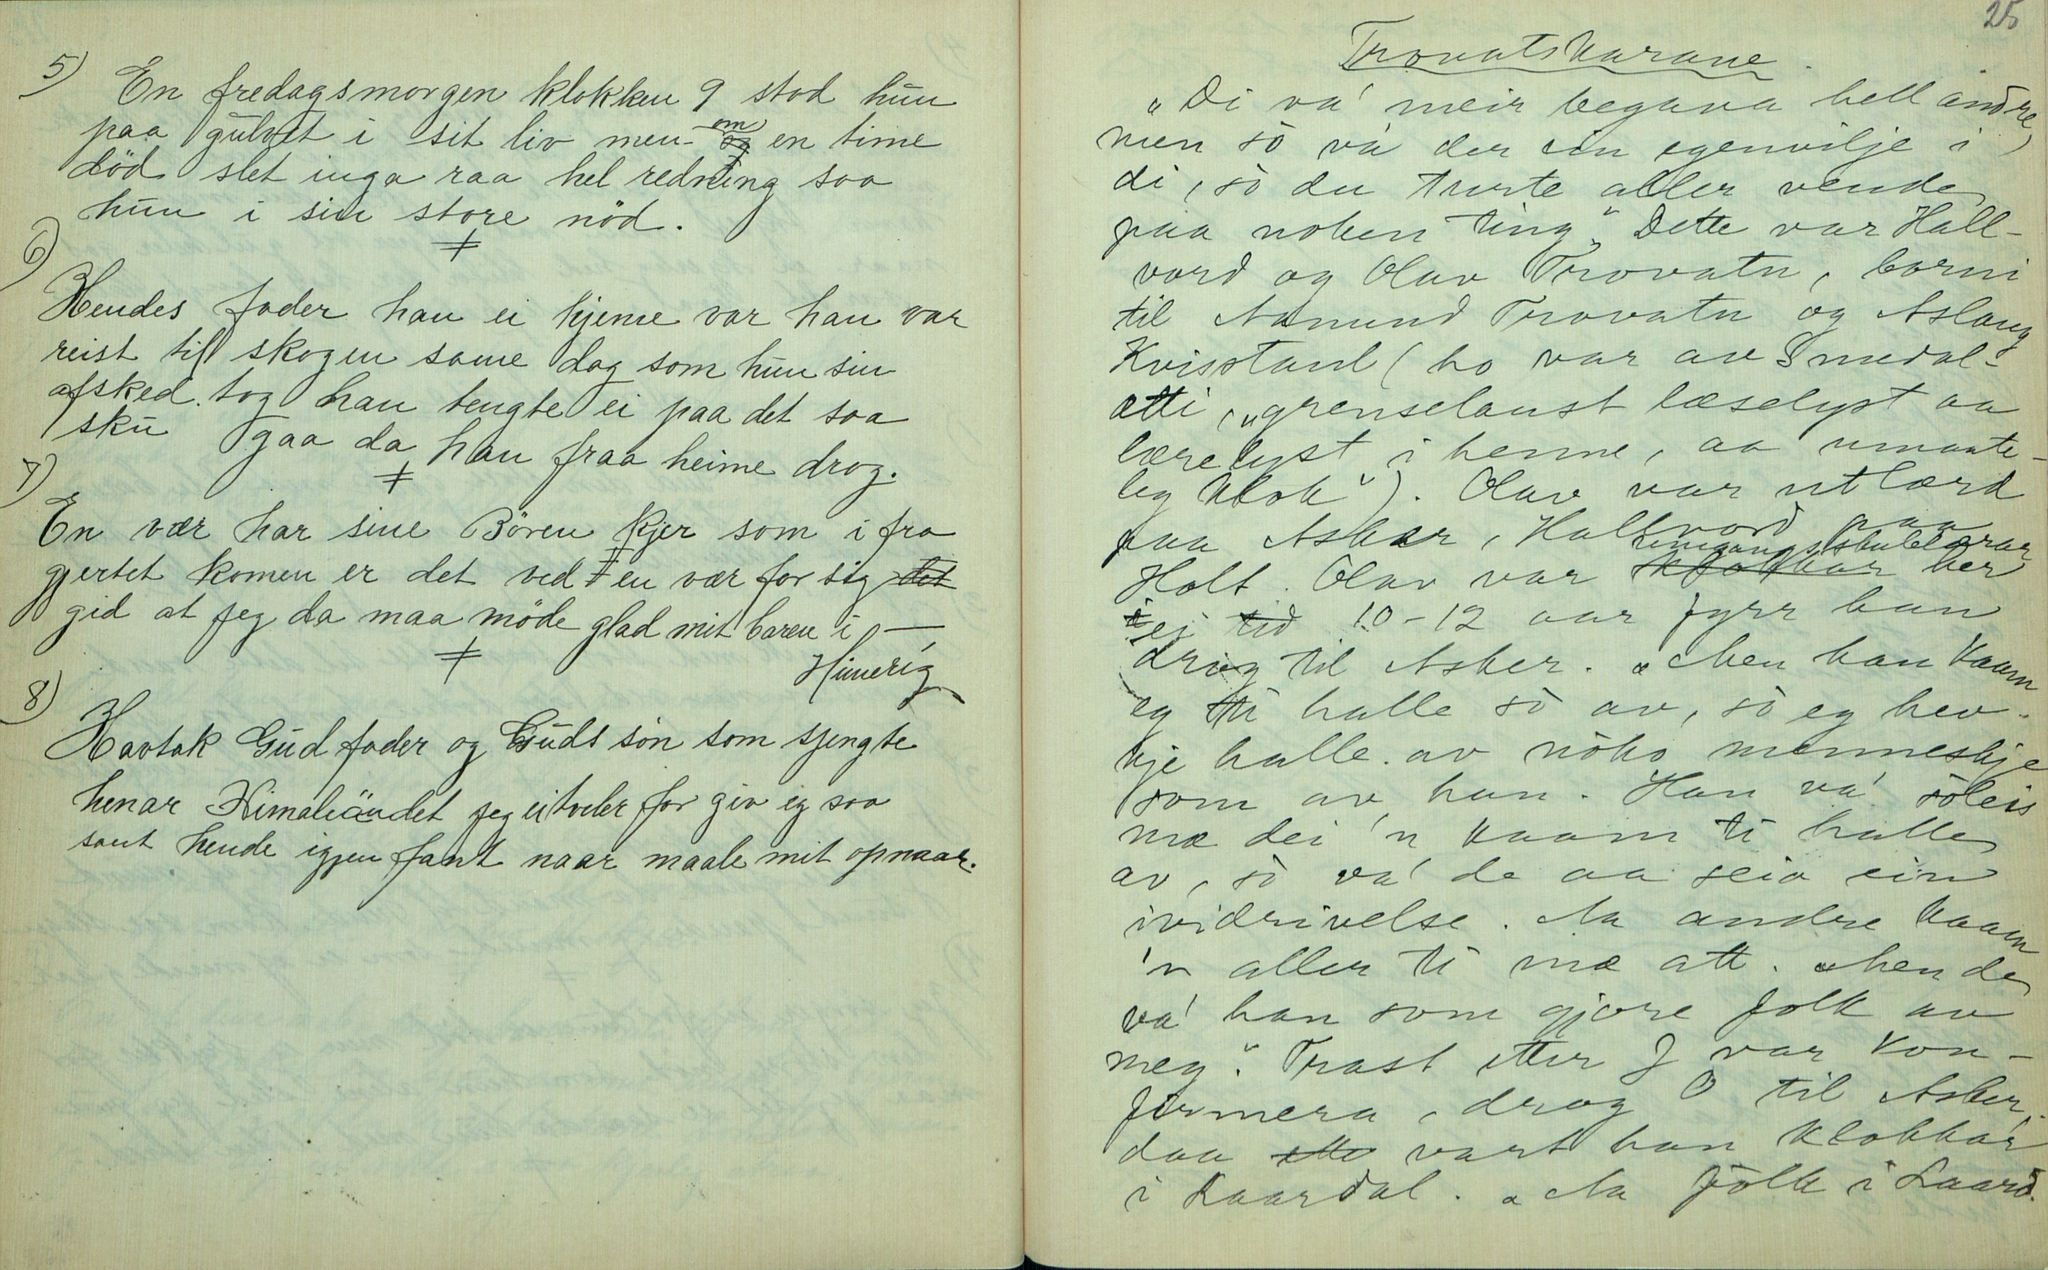 5)
En fredagsmorgen klokken 9 stod hun
paa gulvet i sit liv men om en time
död slet inga raa hel redning saa
hun i sin store nöd.
6)
Hendes fader han ei hjeme var han var
reist til skogen same dag som hun sin
afsked tog han tengte ei paa det saa
sku gaa da han fraa heime drog.
7)
En vær har sine Bören kjer som i fra
gjertet komen er det ved en vær for sig det
gid at jeg da maa möde glad mit baren i
Himerig
8)
Havtak Gud fader og Guds sön som sjengte
henar Himeli det jeg ei for giv eg saa
sant hende igjen fant naar maale mit opnaar.
25
Trovatskarane
"Di va' meir begava hell andre,
men so va' der ein egenvilje i
di, so du turte aller vende
paa noken ting". Dette var Hall-
vord og Olav Trovatn, borni
til Aamund Trovatn og Aslaug
Kvisstaul (ho var av Smedal-
ætti, "grenselaust læselyst aa
lærelyst i henne, aa umaate-
leg klok"). Olav var utlærd
paa Asker, Hallvord paa
Holt. Olav var umgangsskulelærar her
ei tid 10-12 aar fyrr han
drog til Asker. "Men han kaam
eg ti halle so av, so eg hev
kje halle av noko menneskje
som av han. Han va' soleis
mæ dei 'n kaam ti halle
av, so va' de aa seia ein
ividrivelse. Aa andre kaam
'n aller ti mæ att. Men de
va' han som gjore folk av
meg". Trast etter J var kon-
firmera, drog O til Asker,
daa vart han klokkar
i Kaardal. "Aa folk i Laard.